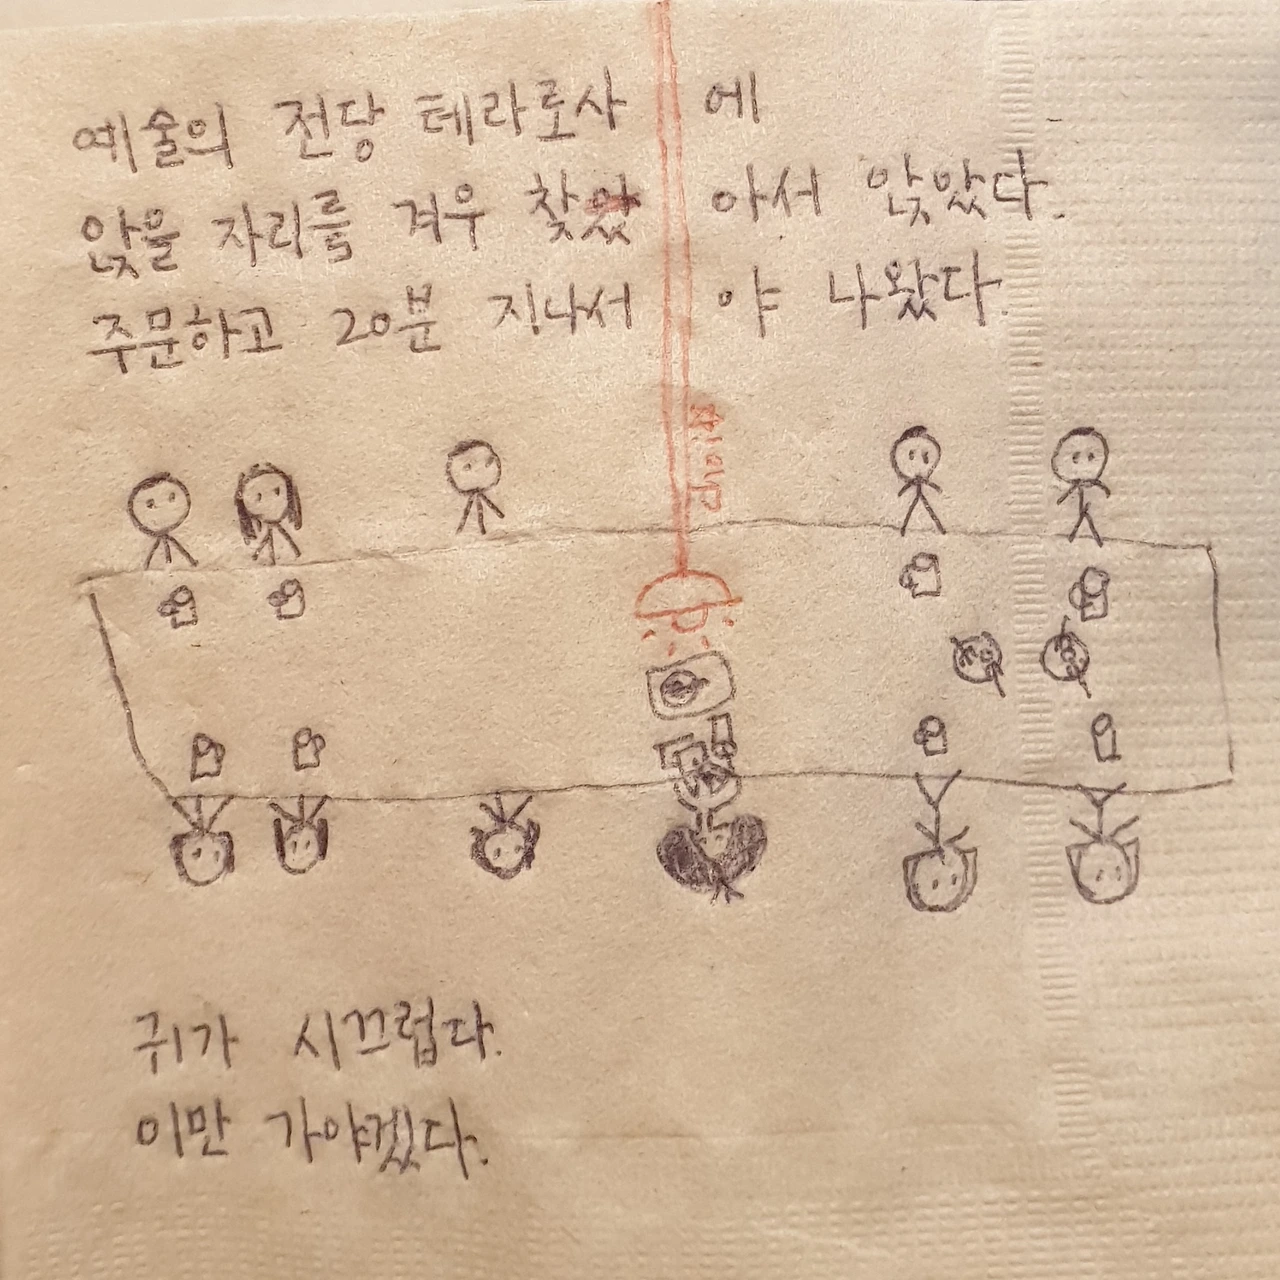 예술의 전당 테라로사 에
앉을 자리를 겨우 찾았 아서 앉았다.
주문하고 20분 지나서 야 나왔다.
귀가 시끄럽다.
이만 가야겠다.